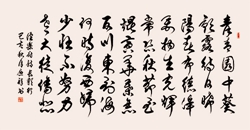 青青園中葵
朝露待日晞
陽春布德澤
萬物生光輝
常恐秋節至
焜黃華葉衰
百川東到海
何時復西歸
少壯不努力
老大徒傷悲
漢樂府詩長歌行